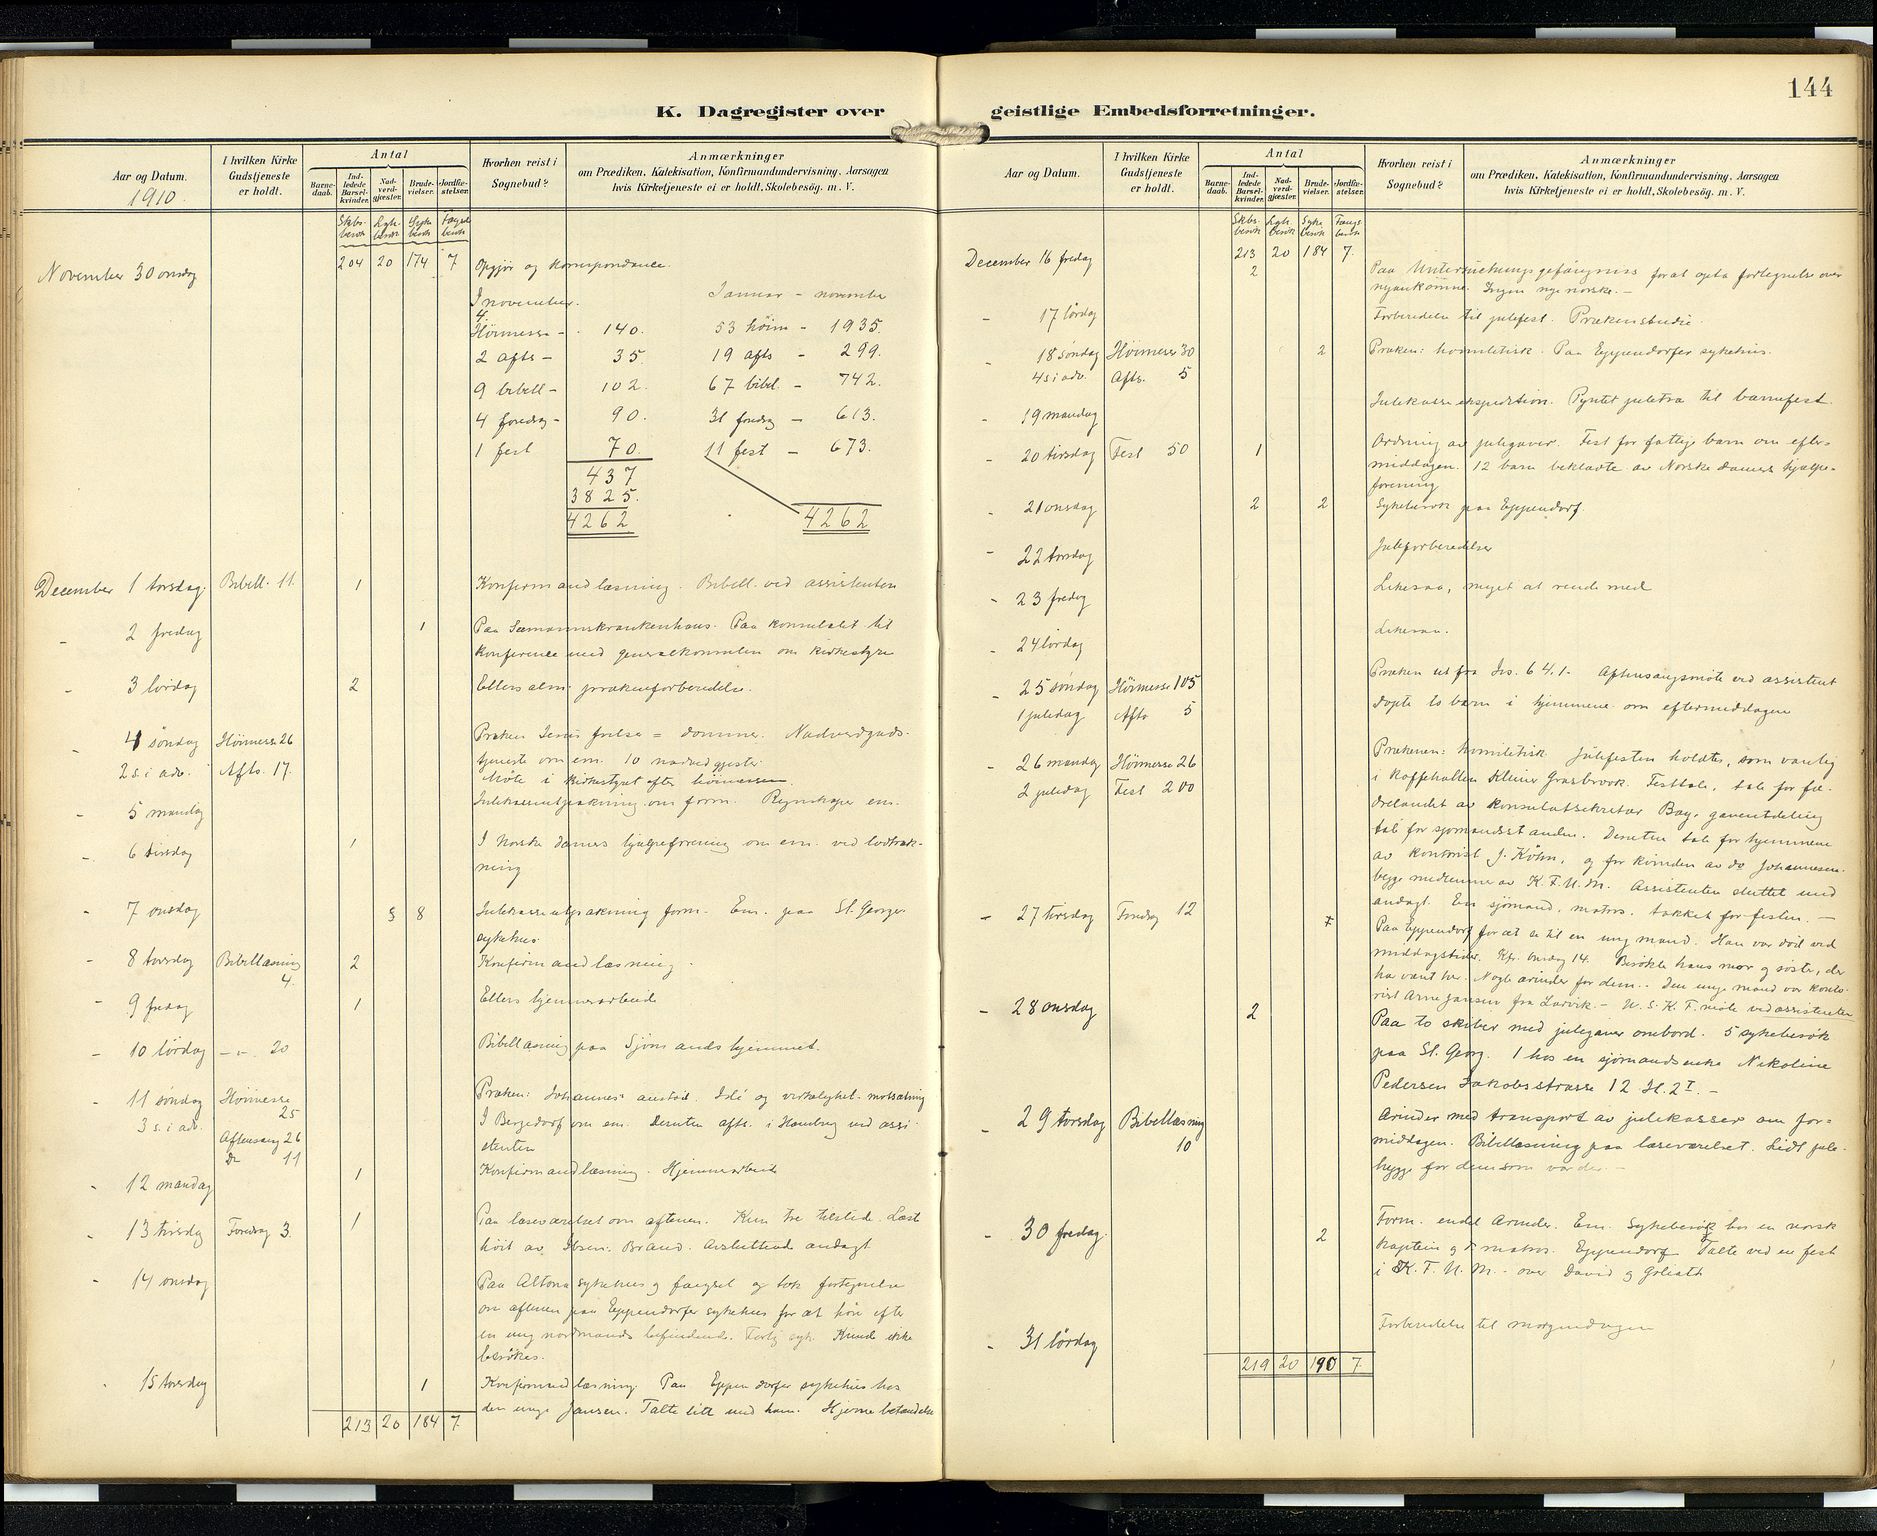 144
K. Dagregister over geistlige Embedsforretninger.
Aar og Datum.
1910.
I hvilken Kirke Gudstjeneste er holdt.
Antal
Barnedaab.
Indledede Barselkvinder.
Nadverdgjæster.
Brudevielser.
Jordfæstelser.
Hvorhen reist i Sognebud?
Anmærkninger
om Prædiken, Katekisation, Konfirmandundervisning, Aarsagen
hvis Kirketjeneste ei er holdt, Skolebesög. m. V.
Skbs. besøk
Syke besøk
November 30 onsdag 204 20 174 7 Opgjør og korrespondance.
I november. Januar - november
4 Höimesse - 140. 53 höim - 1935.
2 afts - 35 19 afts - 299.
9 bibell - 102. 67 bibel. - 742.
4 foredrag - 90. 31 foredrag - 613.
1 fest 70. 11 fest - 673.
437
3825.
4262 4262
December 1 torsdag. Bibell. 11. 1 Konfirmandlæsning. Bibell. ved assistenten
- 2 fredag 1 Paa Seemannskrankenhaus. Paa konsulatet til
konference med generalkonsulen om kirkestyre
- 3 lördag 2 Ellers alm. prækenforberedelse.
- 4 söndag Höimesse 26 Præken Jesus frelser = dommer. Nadverdguds-
2 s. i adv. Afts. 17. tjeneste om em. 10 nadverdgjester.
Möte i kirkestyret efter höimessen
- 5 mandag Julekasseutpakning om form. Regnskaper em.
- 6 tirsdag 1 I norske damers hjælpeforening om em. ved lodtræk-
ning
- 7 onsdag 8 Julekasseutpakning form. Em. paa St. Georgs
sykehus.
- 8 torsdag Bibellæsning 4. 2 Konfirmandlæsning.
- 9 fredag 1 Ellers hjemmearbeide
- 10 lördag -"- 20 Bibellæsning paa Sjömandshjemmet.
- 11 söndag Höimesse 25 Præken: Johannes' anstöd. Idé og virkelighet - motsætning
3 s. i adv. Aftensang 26 I Bergedorf om em. Desuten afts. i Hamburg ved assi-
Do 11 stenten
- 12 mandag 1 Konfirmandlæsning. Hjemmearbeide
- 13 tirsdag Foredrag 3. 1 Paa læseværelset om aftenen. Kun tre tilstede. Læst
höit av Ibsen: Brand. Avsluttende andagt
- 14 onsdag Paa Altona sykehus og fængsel og tok fortegnelse
om aftenen paa Eppendorfer sykehus for at höre efter
en ung nordmands befindende. Farlig syk. Kunde ikke
besökes.
- 15 torsdag 1 Konfirmandlæsning. Paa Eppendorfer sykehus hos
den unge Jansen. Talte litt med ham. Hjerne betændelse
213 20 184 7
Aar og Datum.
I hvilken Kirke Gudstjeneste er holdt.
Antal
Barnedaab.
Indledede Barselkvinder.
Nadverdgjæster.
Brudevielser.
Jordfæstelser.
Hvorhen reist i Sognebud?
Anmærkninger
om Prædiken, Katekisation, Konfirmandundervisning, Aarsagen
hvis Kirketjeneste ei er holdt, Skolebesög. m. V.
Skbs. besøk
Syke besøk
213 20 184 7.
December 16 fredag 2 Paa Untersuchungsgefängniss for at opta fortegnelse over
nyankomne. Ingen nye norske. -
- 17 lördag Forberedelse til julefest. Prækenstudie.
- 18 söndag Höimesse 30 2 Præken: homiletisk. Paa Eppendorfer sykehus.
4 s i adv. Afts. 5
- 19 mandag Julekasseekspedition. Pyntet juletræ til barnefest.
- 20 tirsdag Fest 50 1 Ordning av julegaver. Fest for fattige barn om efter-
middagen. 12 barn beklædte av Norske damers hjælpe-
forening
- 21 onsdag 2 2 Sykebesök paa Eppendorf.
- 22 torsdag Juleforberedelser
- 23 fredag Likesaa, meget at rende med
- 24 lördag Likesaa.
- 25 söndag Höimesse 105 Præken ut fra Jes. 64.1 - Aftensangsmöte ved assistent
1 juledag Afts 5 döpte to barn i hjemmene om eftermiddagen
- 26 mandag Höimesse 26 Prækenen: homiletisk. Julefesten holdtes, som vanlig
2 juledag Fest 200 i Kaffehallen Kleiner Grasbrook. Festtale, tale for fæ-
drelandet av konsulatsekretær Bay, gaveutdeling
tale for sjømandsstanden. Desuten tale for hjemmene
av kontorist J. Köhn, og for kvinden av do Johannesen.
begge medlemmer av K.F.U.M. Assistenten sluttet med
andagt. En sjömand, matros, takket for festen. -
- 27 tirsdag Foredrag 12 Paa Eppendorf for at se til en ung mand. Han var död ved
middagstider. Kfr. onsdag 14. Besökte hans mor og söster, der
har været her. Nogle ærinder for dem. - Den unge mand var konto-
rist Arne Jansen fra Larvik. - U.S.K.F. möte ved assistenten
- 28 onsdag 2 Paa to skiber med julegaver ombord. 5 sykebesök
paa St. Georg. 1 hos en sjömandsenke Nikoline
Pedersen Jakobsstrasse 12 H. 2 I. -
- 29 torsdag Bibellæsning 10 Ærinder med transport av julekasser om for-
middagen. Bibellæsning paa læseværelset. Lidt jule-
hygge for dem som var der. -
- 30 fredag. 2 Form. endel ærinder. Em. Sykebesök hos en norsk
kaptein og 1 matros. Eppendorf. Talte ved en fest
i K.F.U.M. - over David og Goliath
- 31 lördag Forberedelse til morgendagen
219 20 190 7.